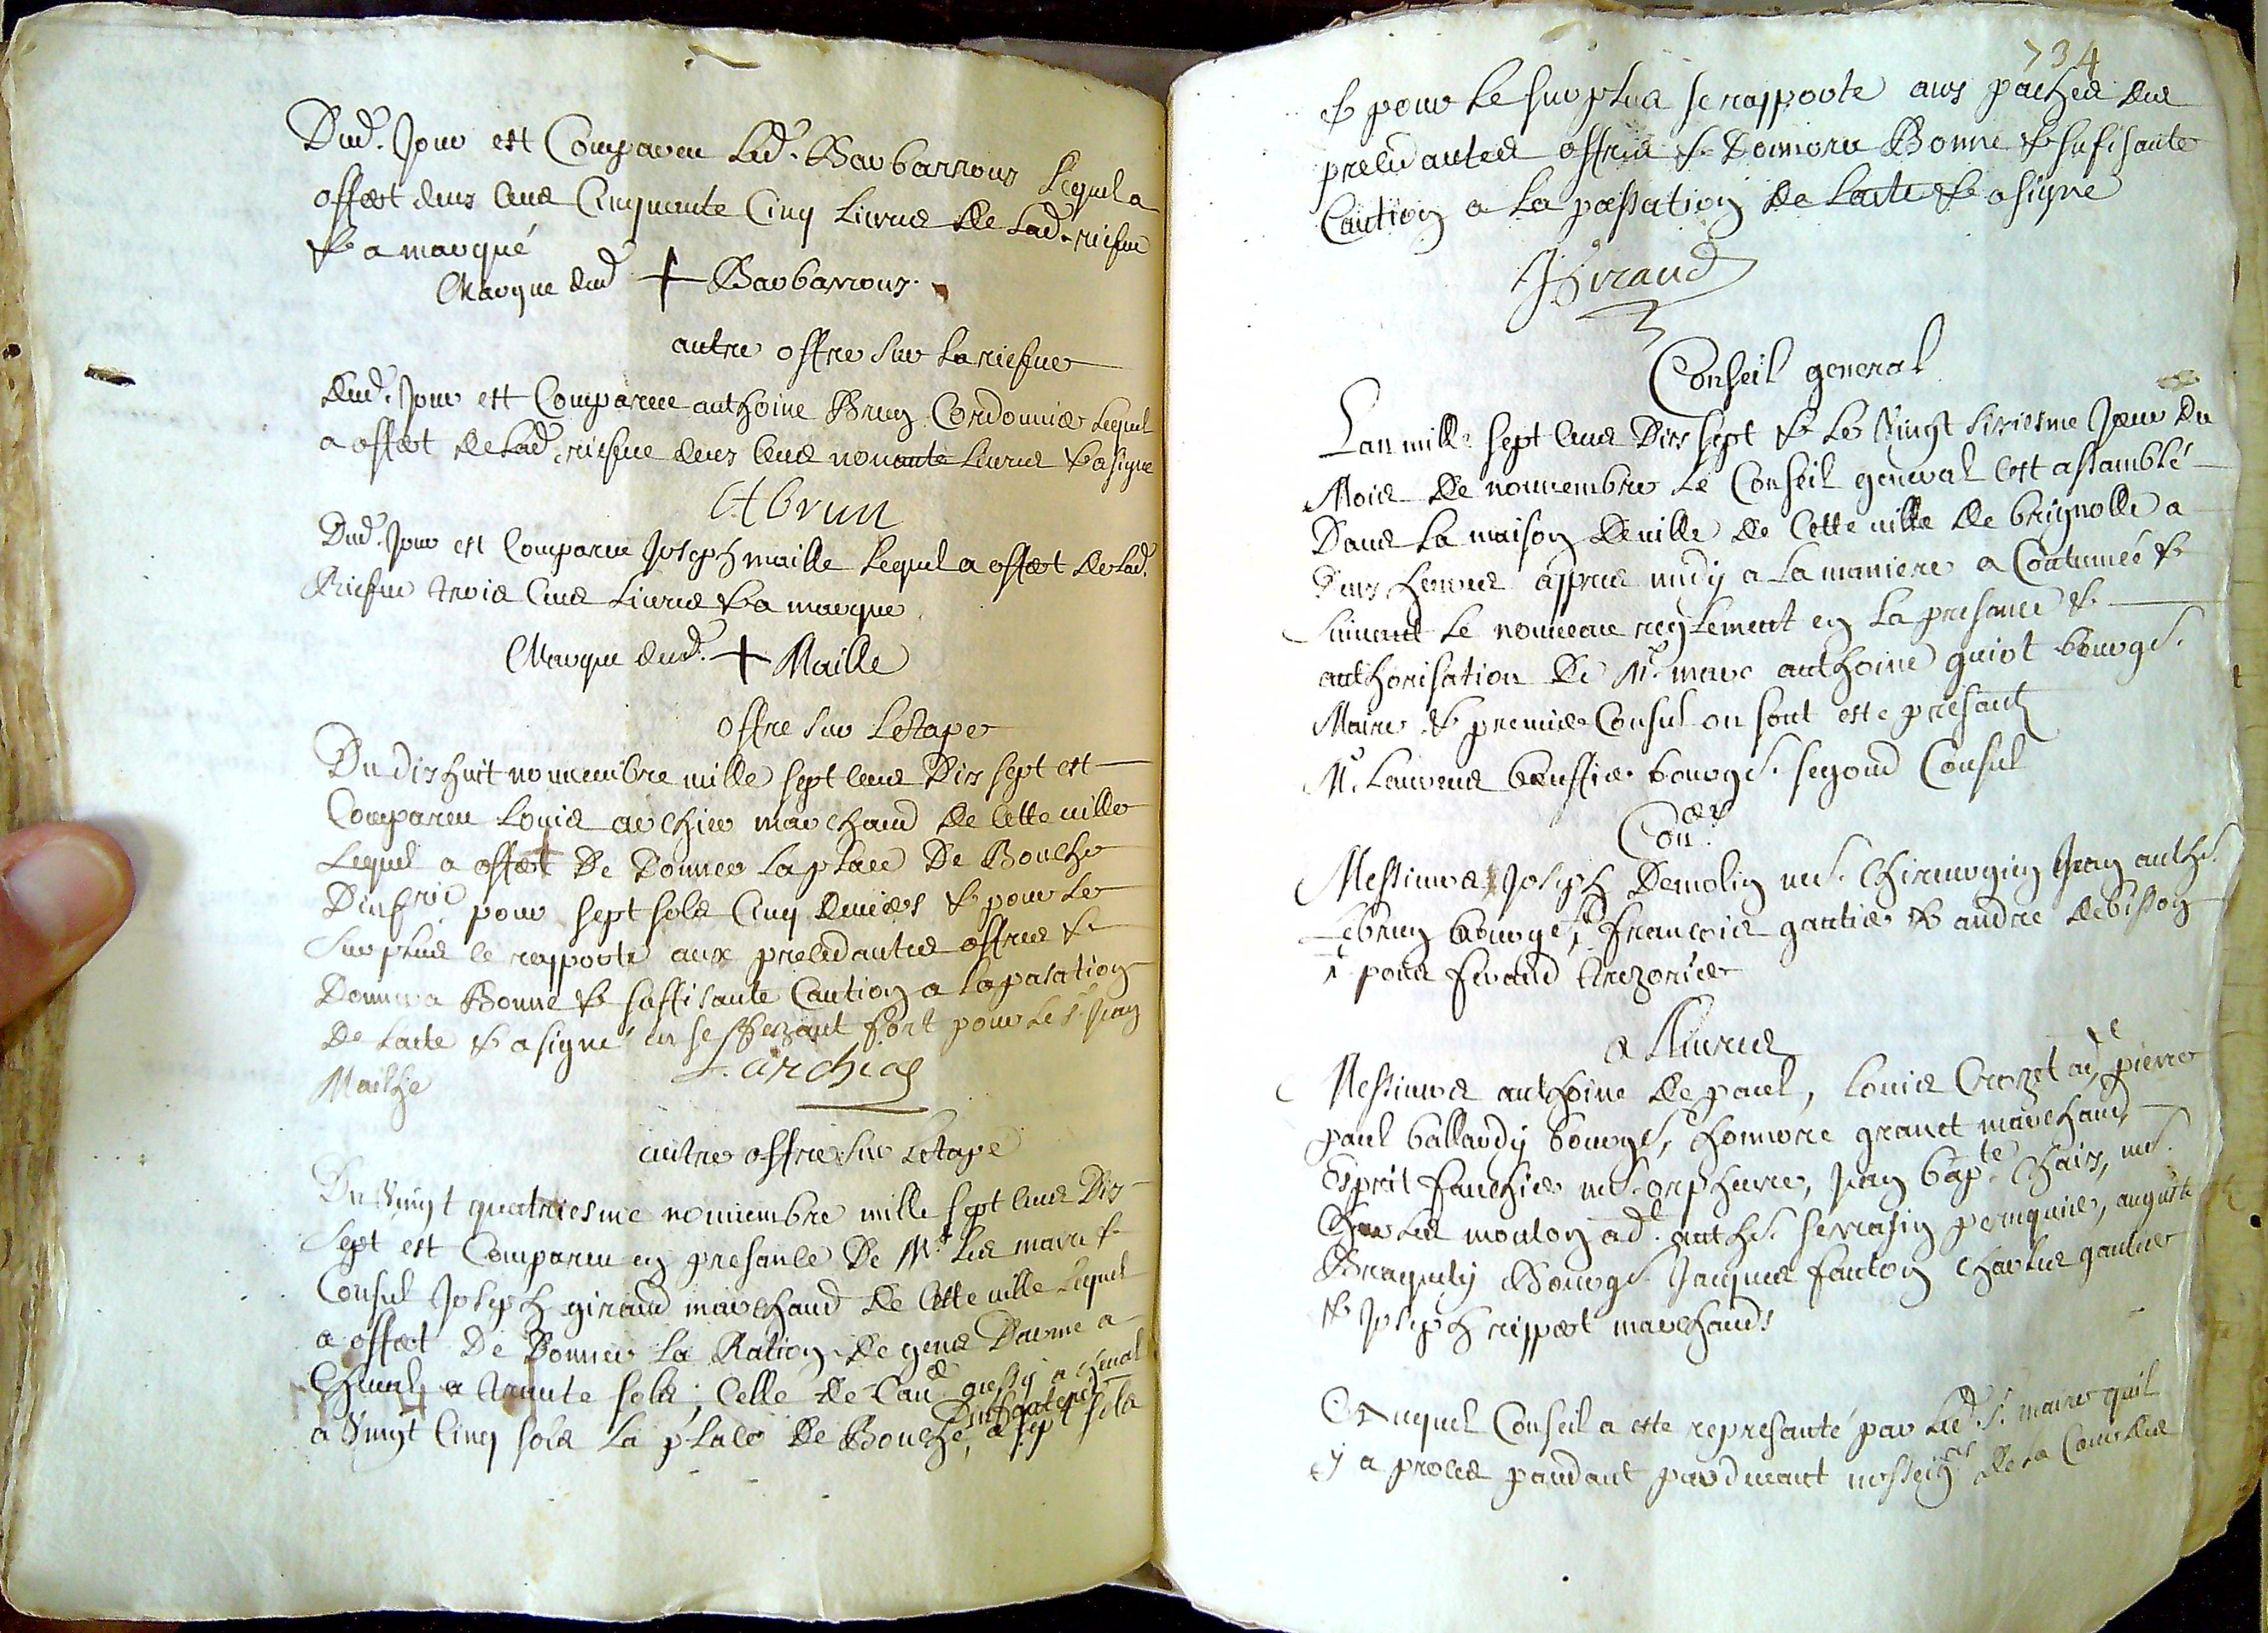 Dud. Jour est Compareu Led. Barbarroux Lequel a
offert deux Cens Cinquante Cinq Livres de Lad. riefve
& a marqué
Marque dud + Barbarroux.
autre offre sur La riefve
dud. Jour est Compareu anthoine Brun Cordonnier Lequel
a offert de Lad. riefve deux Cens nonante Livres & a signé
A brun
Dud. Jour est Compareu Joseph maille Lequel a offert de Lad.
Riefve trois Cens Livres & a marque
Marque dud. + Maille
offre sur Letape
Du dix huit nouvembre mille sept Cens Dix sept est
Compareu Louis archier marchand de Cette ville
Lequel a offert De Donner La place De Bouche
Dinf.rie pour sept sols Cinq deniers & pour Le
surplus se rapporte aux precedantes offres &
Donnera Bonne & suffisante Caution a La pasation
de Lacte & a signé en se ffezant fort pour Le s.r Jean
Maille
L. archier
autre offre sur Letape
Du Vingt quatriesme nouvembre mille sept Cens Dix
sept est Compareu en presance De M.rs Les maire &
Consul Joseph giraud marchand de Cette ville Lequel
a offert De Donner La Ration de gens Darme a
Cheval a trante sols; Celle de Cav.le aussy a cheval
a Vingt Cinq sols La place de Bouche Dinfanterie, a sept sols
734
& pour Le surplus se rapporte aux paches des
precedantes offres & Donnera Bonne & sufisante
Caution a La passation de Lacte & a signé
J Giraud
Conseil general
Lan mille sept Cens Dix sept & Le Vingt sixiesme Jour du
Mois de nouvembre Le Conseil general Cest assamblé
Dans La maison de ville de Cette ville de brignolle a
Deux heures appres midy a La maniere a Coutumée &
suivant Le nouveau reglement en La presance &
authorisation de M.r marc anthoine guiot bourgs.
Maire & premier Consul ou sont este presants
M.r Laurens bouffier bourgs. segond Consul
Con.ers
Messieurs Joseph Demolin m.e Chirurgien Jean anth.e
Lebrun bourgs, francois gautier & andre debisson
pons feraud trezorier
a Livres
Messieurs anthoine de paul, Louis Crozet ad, pierre
paul ballardy bourgs, honnore granet marchand,
Esprit fauchier m.e orpheuvre, Jean bap.te Chaix, m.e
Charles mouton ad. anth.e serrasin peruquier, auguste
Braquety Bourgs. Jacques fanton Charles gautier
& Joseph rippert marchands
Auquel Conseil a este represanté par Led. s. maire quil
y a proces pandant pardevant nosseig.rs de La Cour des